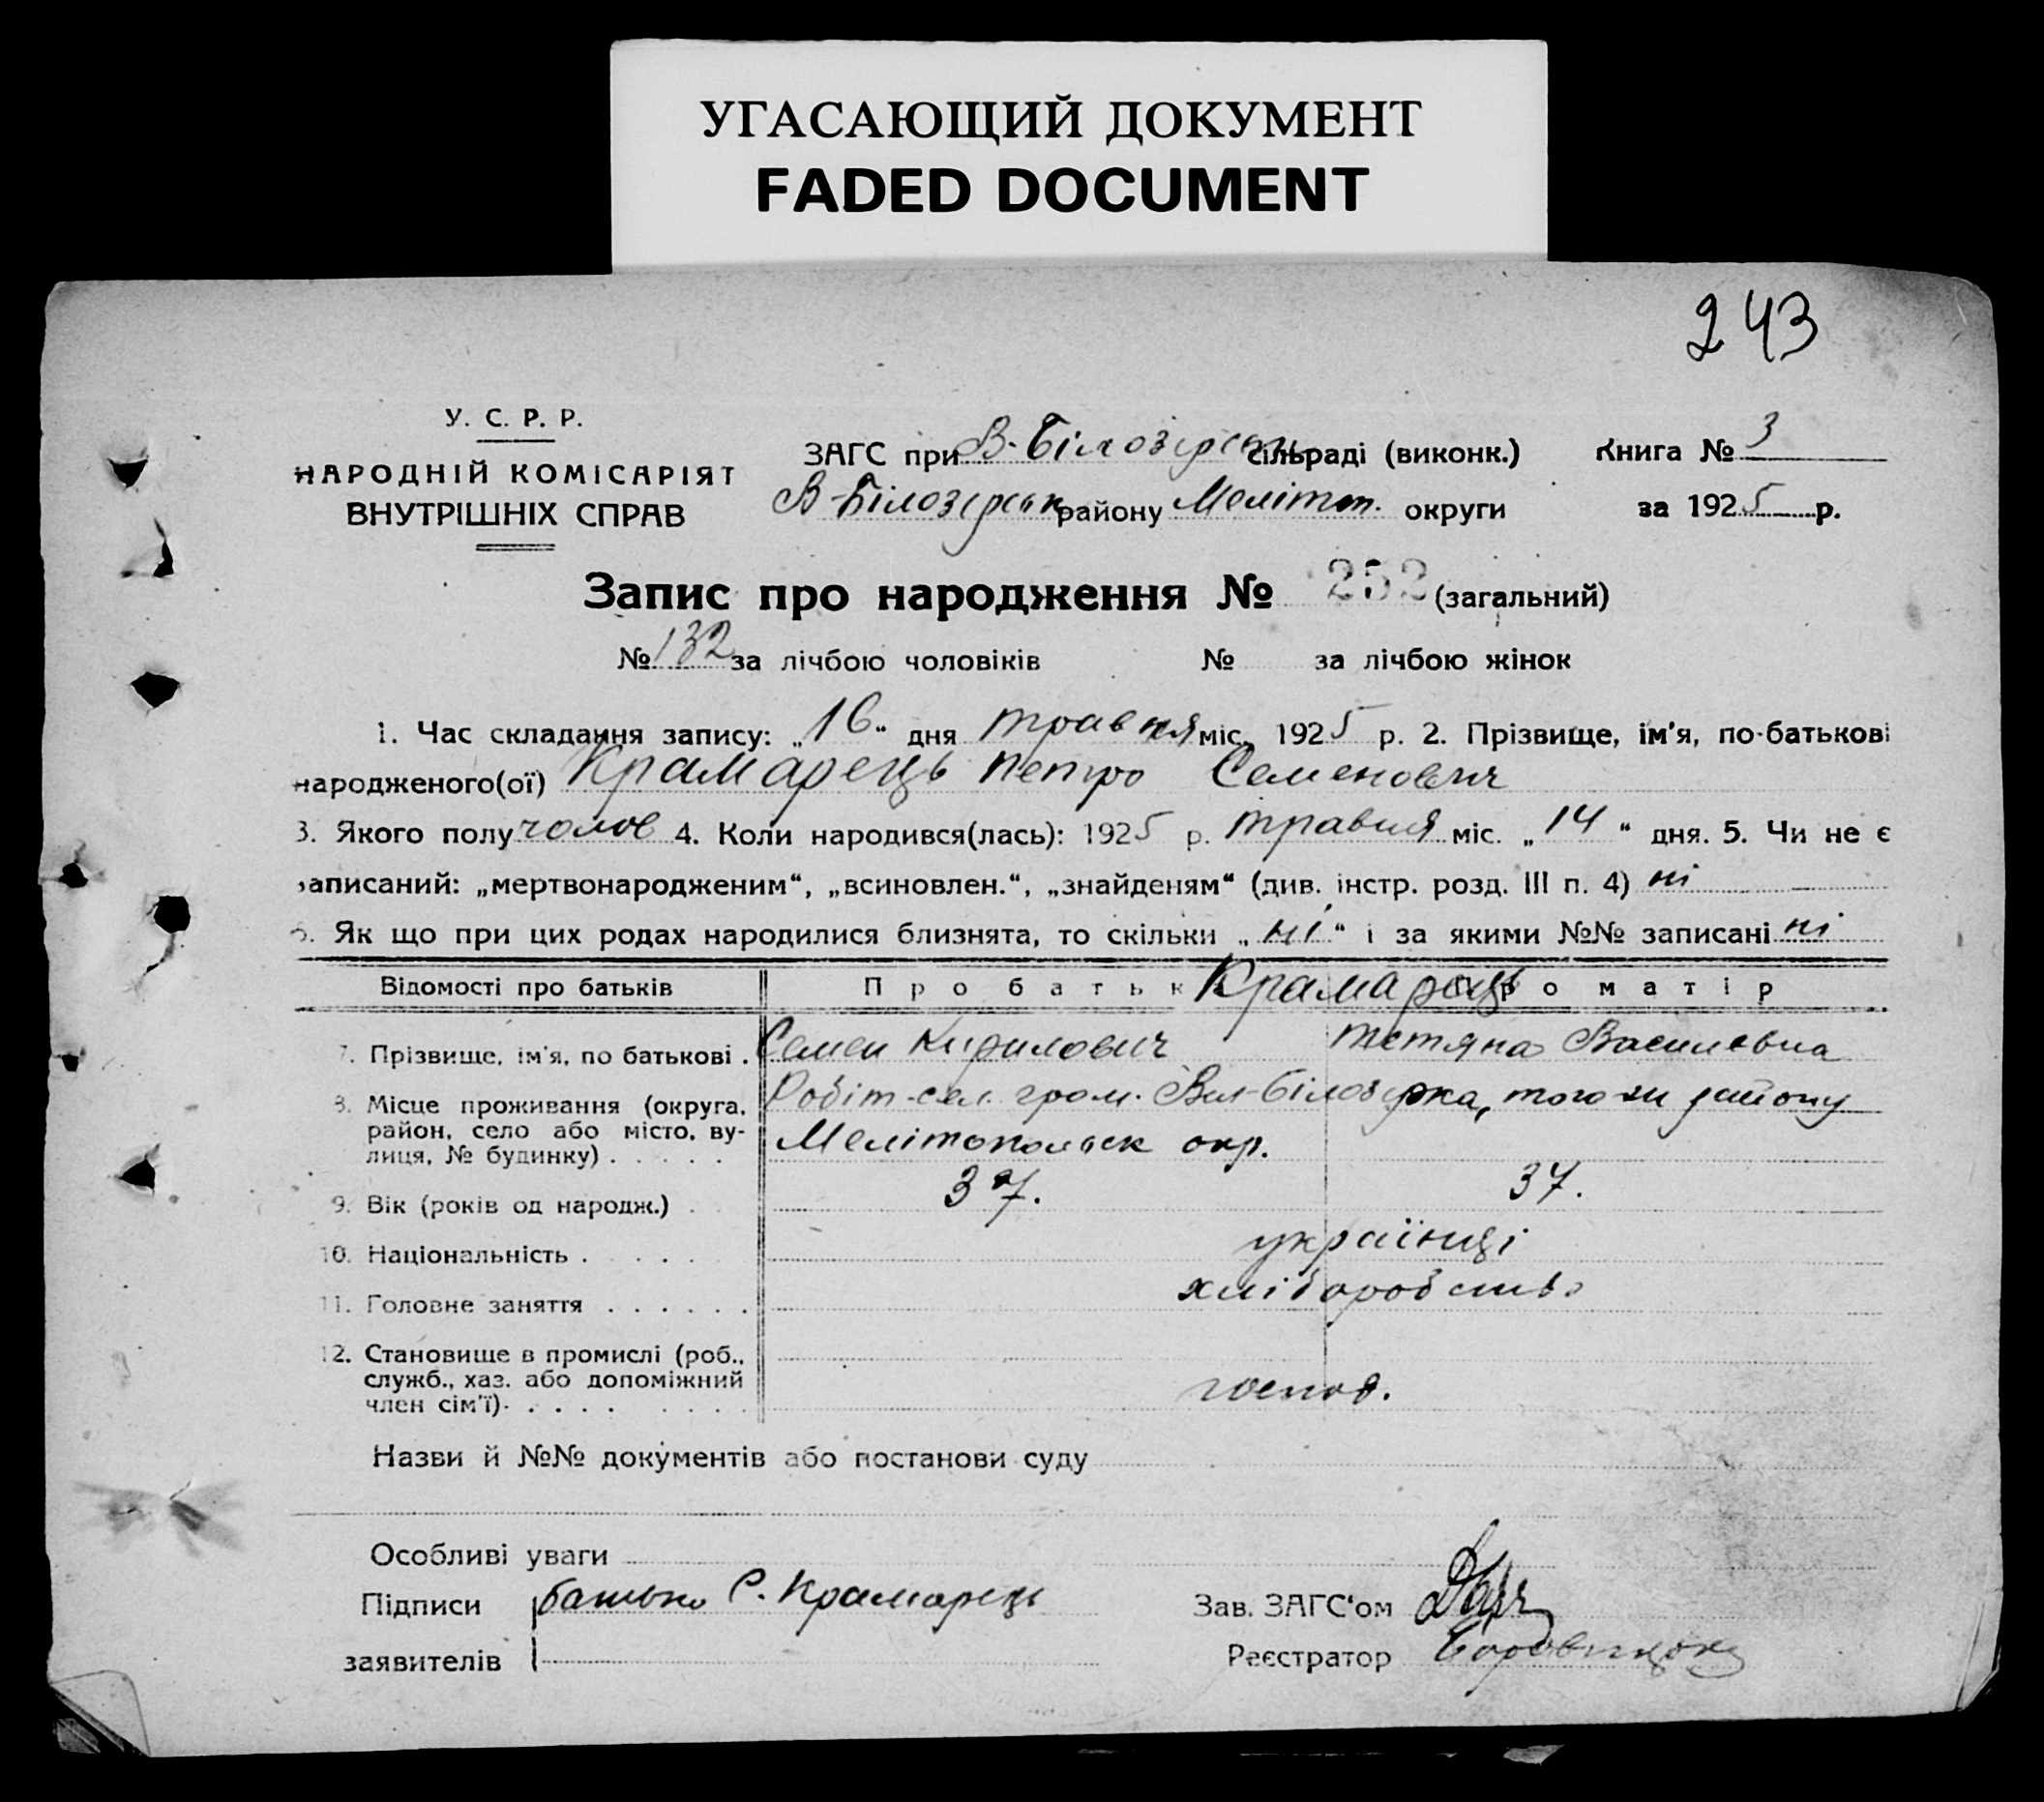 УГАСАЮЩИЙ ДОКУМЕНТ
FADED DOCUMENT
243
У. С. Р. Р.
НАРОДНІЙ КОМІСАРІЯТ
ВНУТРІШНІХ СПРАВ
ЗАГС при В-Білозірськ сільраді (виконк.) Книга № 3
В-Білозерськ району Меліт. округи за 1925 р.
Запис про народження № 252 (загальний)
№ 132 за лічбою чоловіків № за лічбою жінок
1. Час складання запису: „16“ дня травня міс. 1925 р. 2. Прізвище, ім'я, по-батькові
народженого(ої) Крамарець Петро Семенович
3. Якого полу чолов 4. Коли народився(лась): 1925 р. травня міс. „14“ дня. 5. Чи не є
записаний: „мертвонародженим“, „всиновлен.“, „знайденям“ (див. інстр. розд. III п. 4) ні
6. Як що при цих родах народилися близнята, то скільки „ні“ і за якими №№ записані ні
Відомості про батьків Про батька Крамарець Про матір
7. Прізвище, ім'я, по батькові . Семен Кирилович Тетяна Василевна
8. Місце проживання (округа, Робіт-сел. гром. Вел-Білозерка, того ж району
район, село або місто, ву-
лиця, № будинку) . . . . . Мелітопольск окр.
9. Вік (років од народж.) . 37. 37.
10. Національність . . . . . українці
11. Головне заняття . . . . . . хліборобство
12. Становище в промислі (роб.,
служб., хаз. або допоміжний
член сім'ї). . . . . . . . . господ.
Назви й №№ документів або постанови суду
Особливі уваги
Підписи батько С. Крамарець Зав. ЗАГС'ом
заявителів Реєстратор